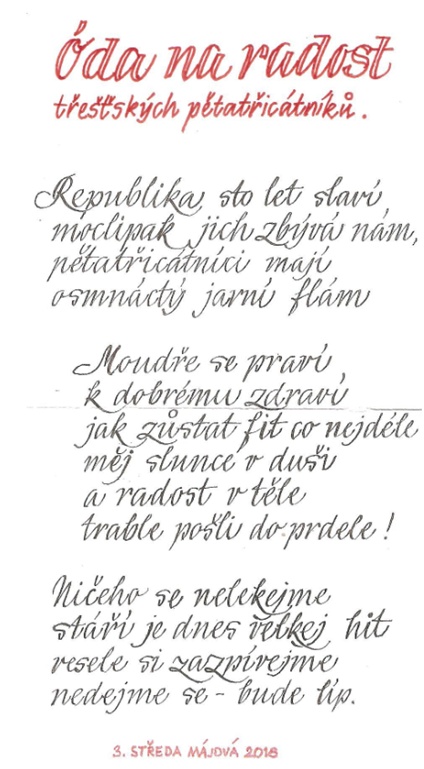 Óda na radost
třešťských pětatřicátníků.
Republika sto let slaví
moclipak jich zbývá nám,
pětatřicátníci mají
osmnáctý jarní flám
Moudře se praví
k dobrému zdraví
jak zůstat fit co nejdéle
měj slunce v duši
a radost v těle
trable pošli do prdele!
Ničeho se nelekejme
stáří je dnes velkej hit
vesele si zazpívejme
nedejme se - bude líp.
3. STŘEDA MÁJOVÁ 2018